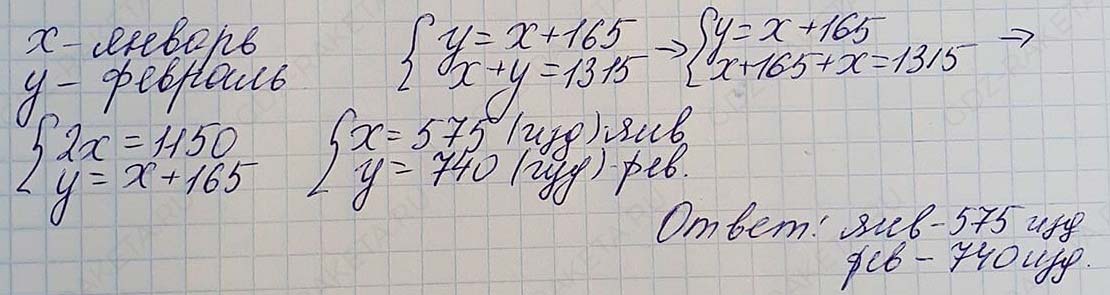 x - январь
y - февраль
{ y = x + 165
x + y = 1315 →
{ y = x + 165
x + 165 + x = 1315 →
{ 2x = 1150
y = x + 165
{ x = 575 (изд) янв
y = 740 (изд) - фев.
Ответ: янв - 575 изд
фев - 740 изд.